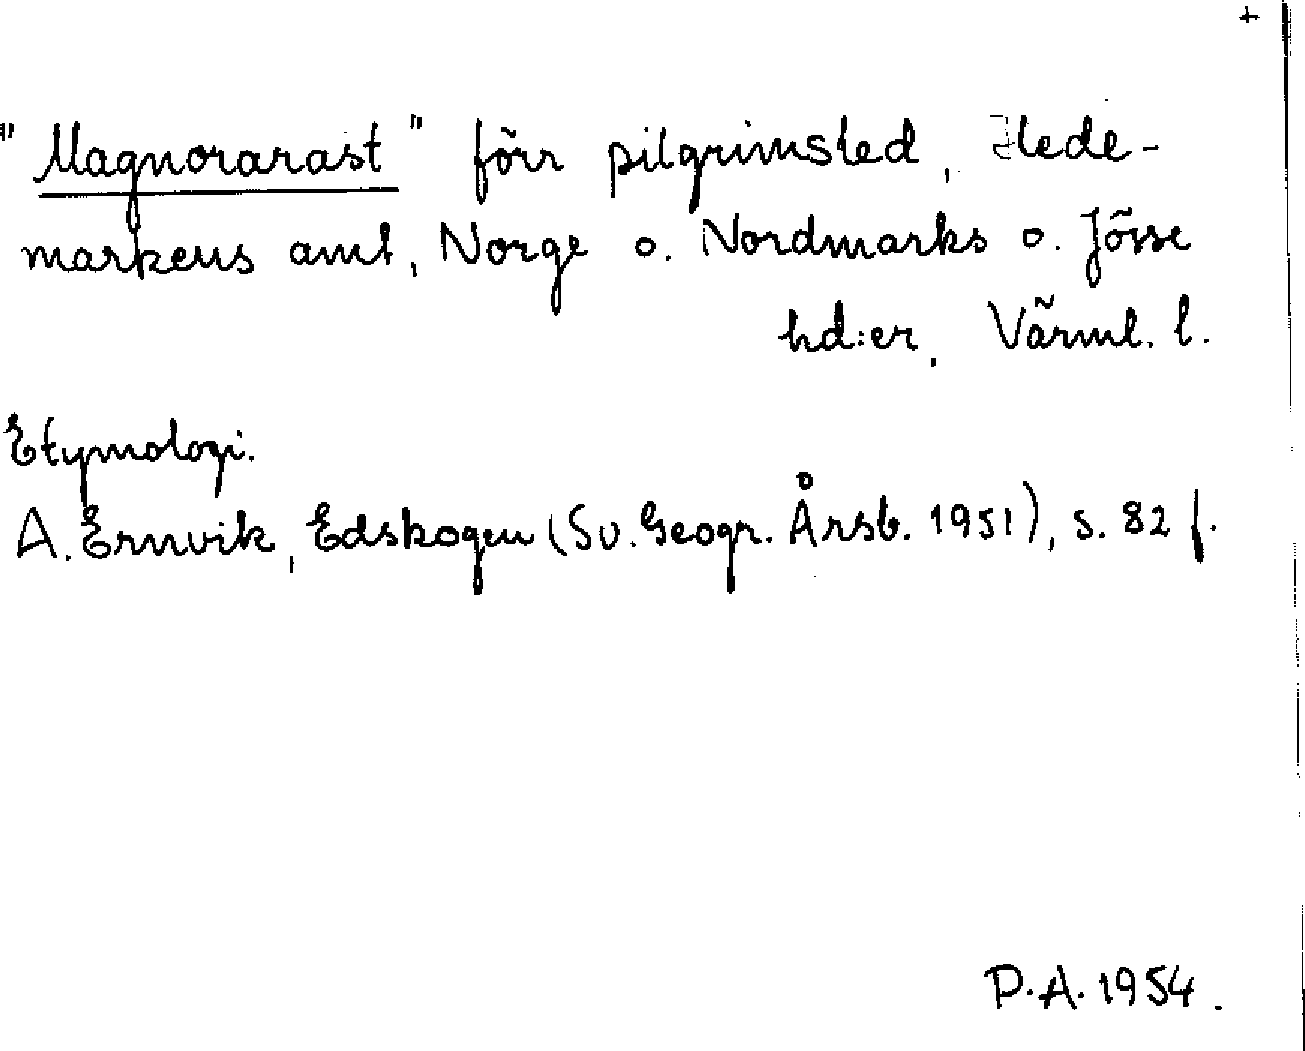 +
"Magnorarast" förr pilgrimsled, Hede-
markens amt, Norge o. Nordmarks o. Jösse
hd:er, Värml. l.
Etymologi.
A. Ernvik, Edskogen (Sv. Geogr. Årsb. 1951), s. 82 f.
P.A. 1954.